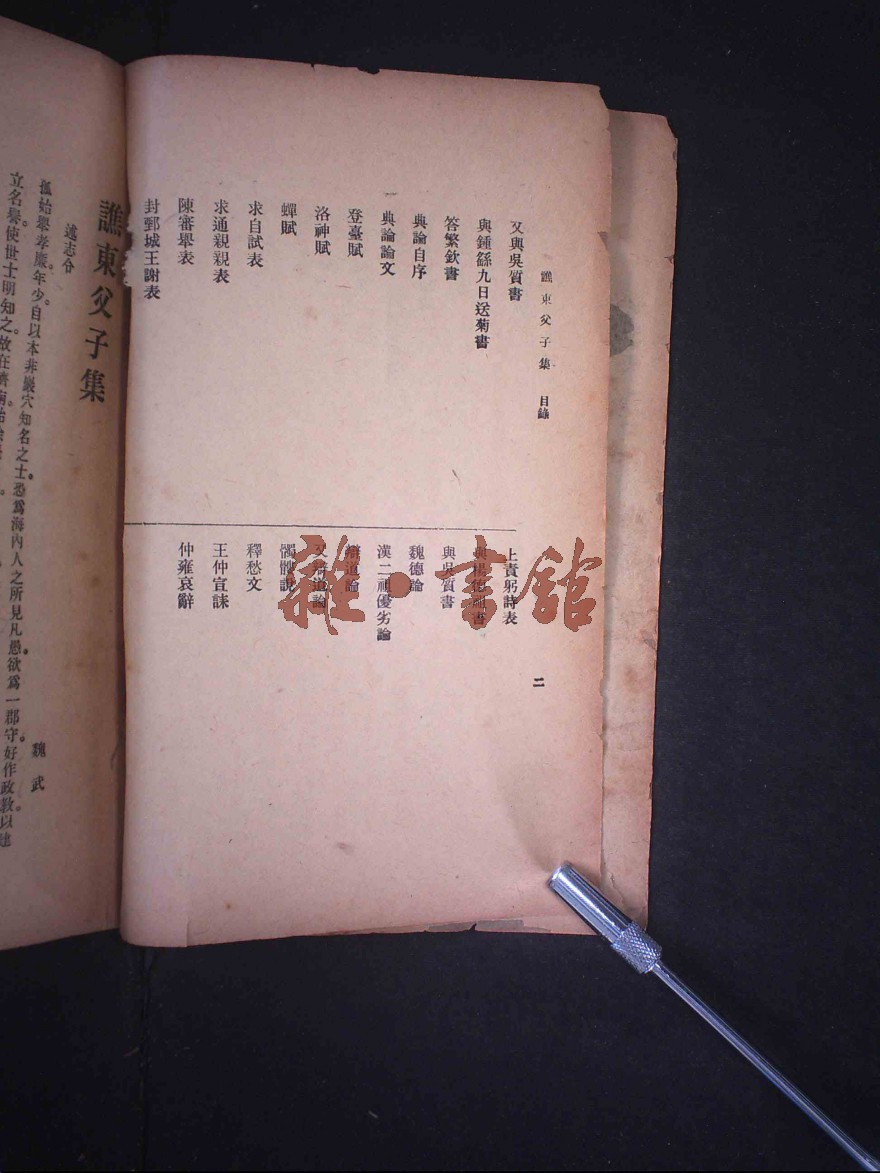 譙東父子集 目錄
二
又與吳質書
與鍾繇九日送菊書
答繁欽書
典論自序
典論論文
登臺賦
洛神賦
蟬賦
求自試表
求通親親表
陳審舉表
封鄄城王謝表
上責躬詩表
與楊德祖書
與吳質書
魏德論
漢二祖優劣論
辯道論
又辯道論
髑髏說
釋愁文
王仲宣誄
仲雍哀辭
譙東父子集
述志令
魏武
孤始舉孝廉。年少。自以本非巖穴知名之士。恐為海內人之所見凡愚。欲為一郡守。好作政教。以建
立名譽。使世士明知之。故在濟南
雜·書館